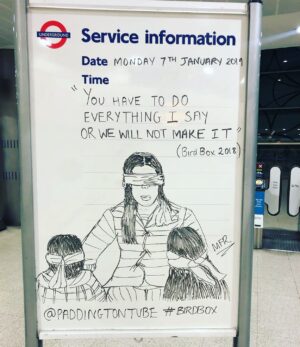 UNDERGROUND
Service information
Date MONDAY 7TH JANUARY 2019
Time
"YOU HAVE TO DO
EVERYTHING I SAY
OR WE WILL NOT MAKE IT"
(Bird Box 2018)
MFR
@PADDINGTONTUBE #BIRDBOX